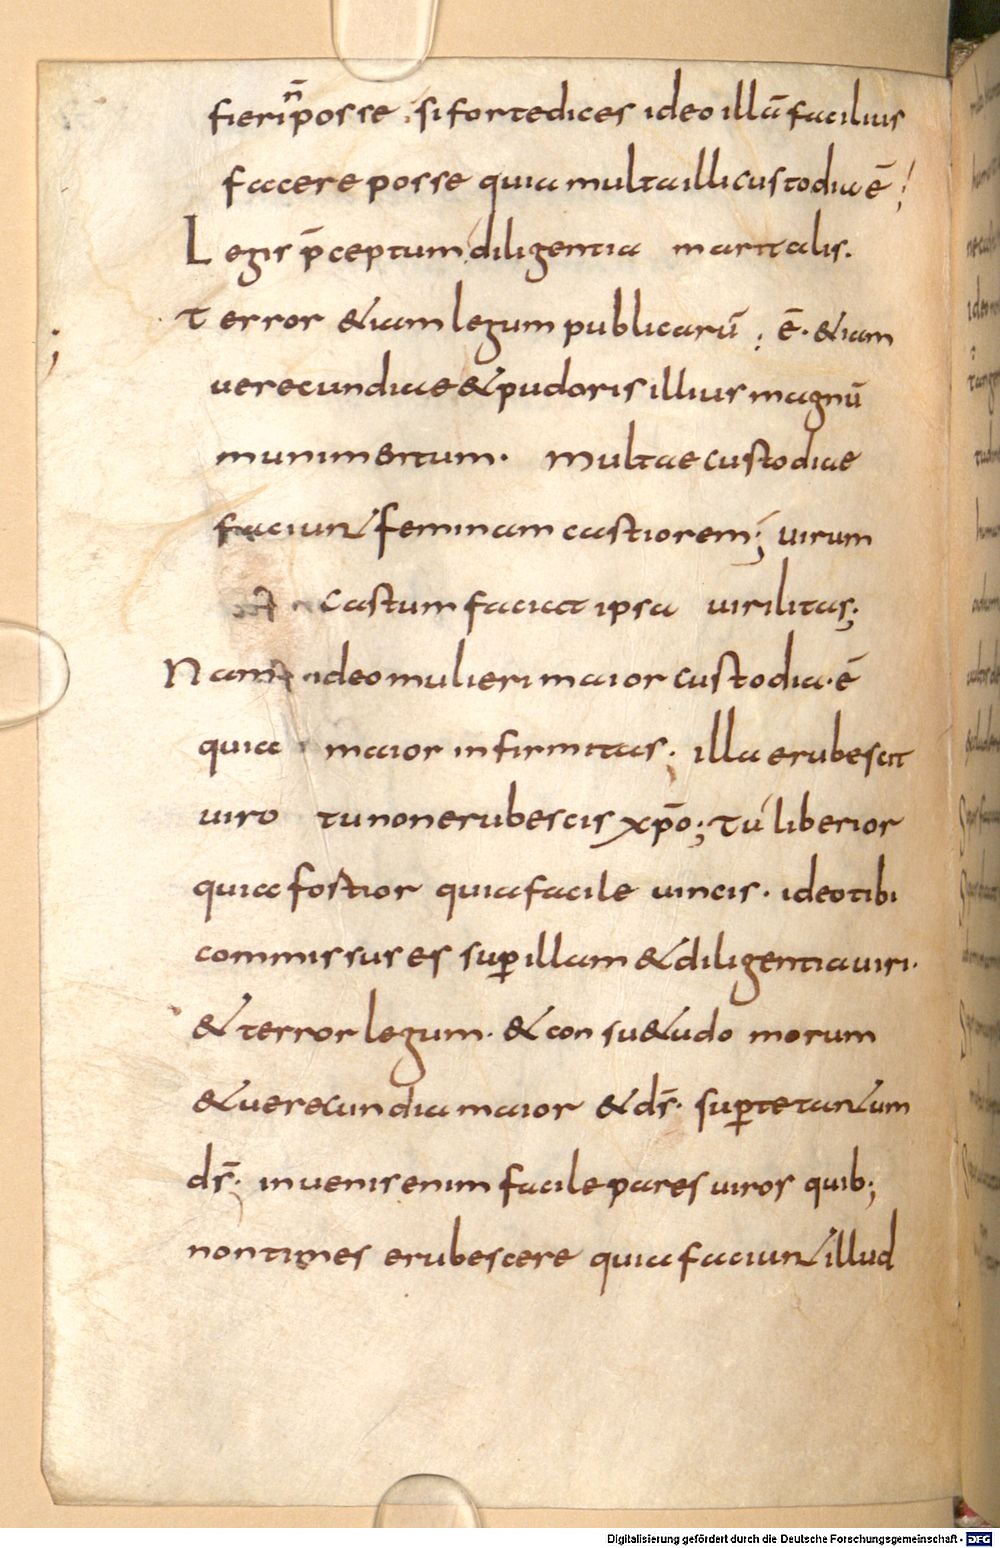 fieri n̄ posse . si forte dices ideo illā facilius
facere posse quia multa illi custodia ē;
Legis p̄ceptum diligentia maritalis.
Terror &iam legum publicarū; ē. &iam
verecundiae & pudoris illius magnū
munimentum. multae custodiae
faciunt feminam castiorem; uirum
castum faciat ipsa uirilitas;
Nam ideo mulieri maior custodia. ē
quia maior infirmitas. illa erubescit
uiro tu non erubescis xp̄o; tu liberior
quia fostior quia facile uincis. ideo tibi
commissus es sup̱ illam & diligentia uiri.
& terror legum. & consu&udo morum
& uerecundia maior & ds̄. sup̱ te tantum
ds̄. inuenis enim facile pares uiros quib;
non times erubescere quia faciunt illud
Digitalisierung gefördert durch die Deutsche Forschungsgemeinschaft - DFG